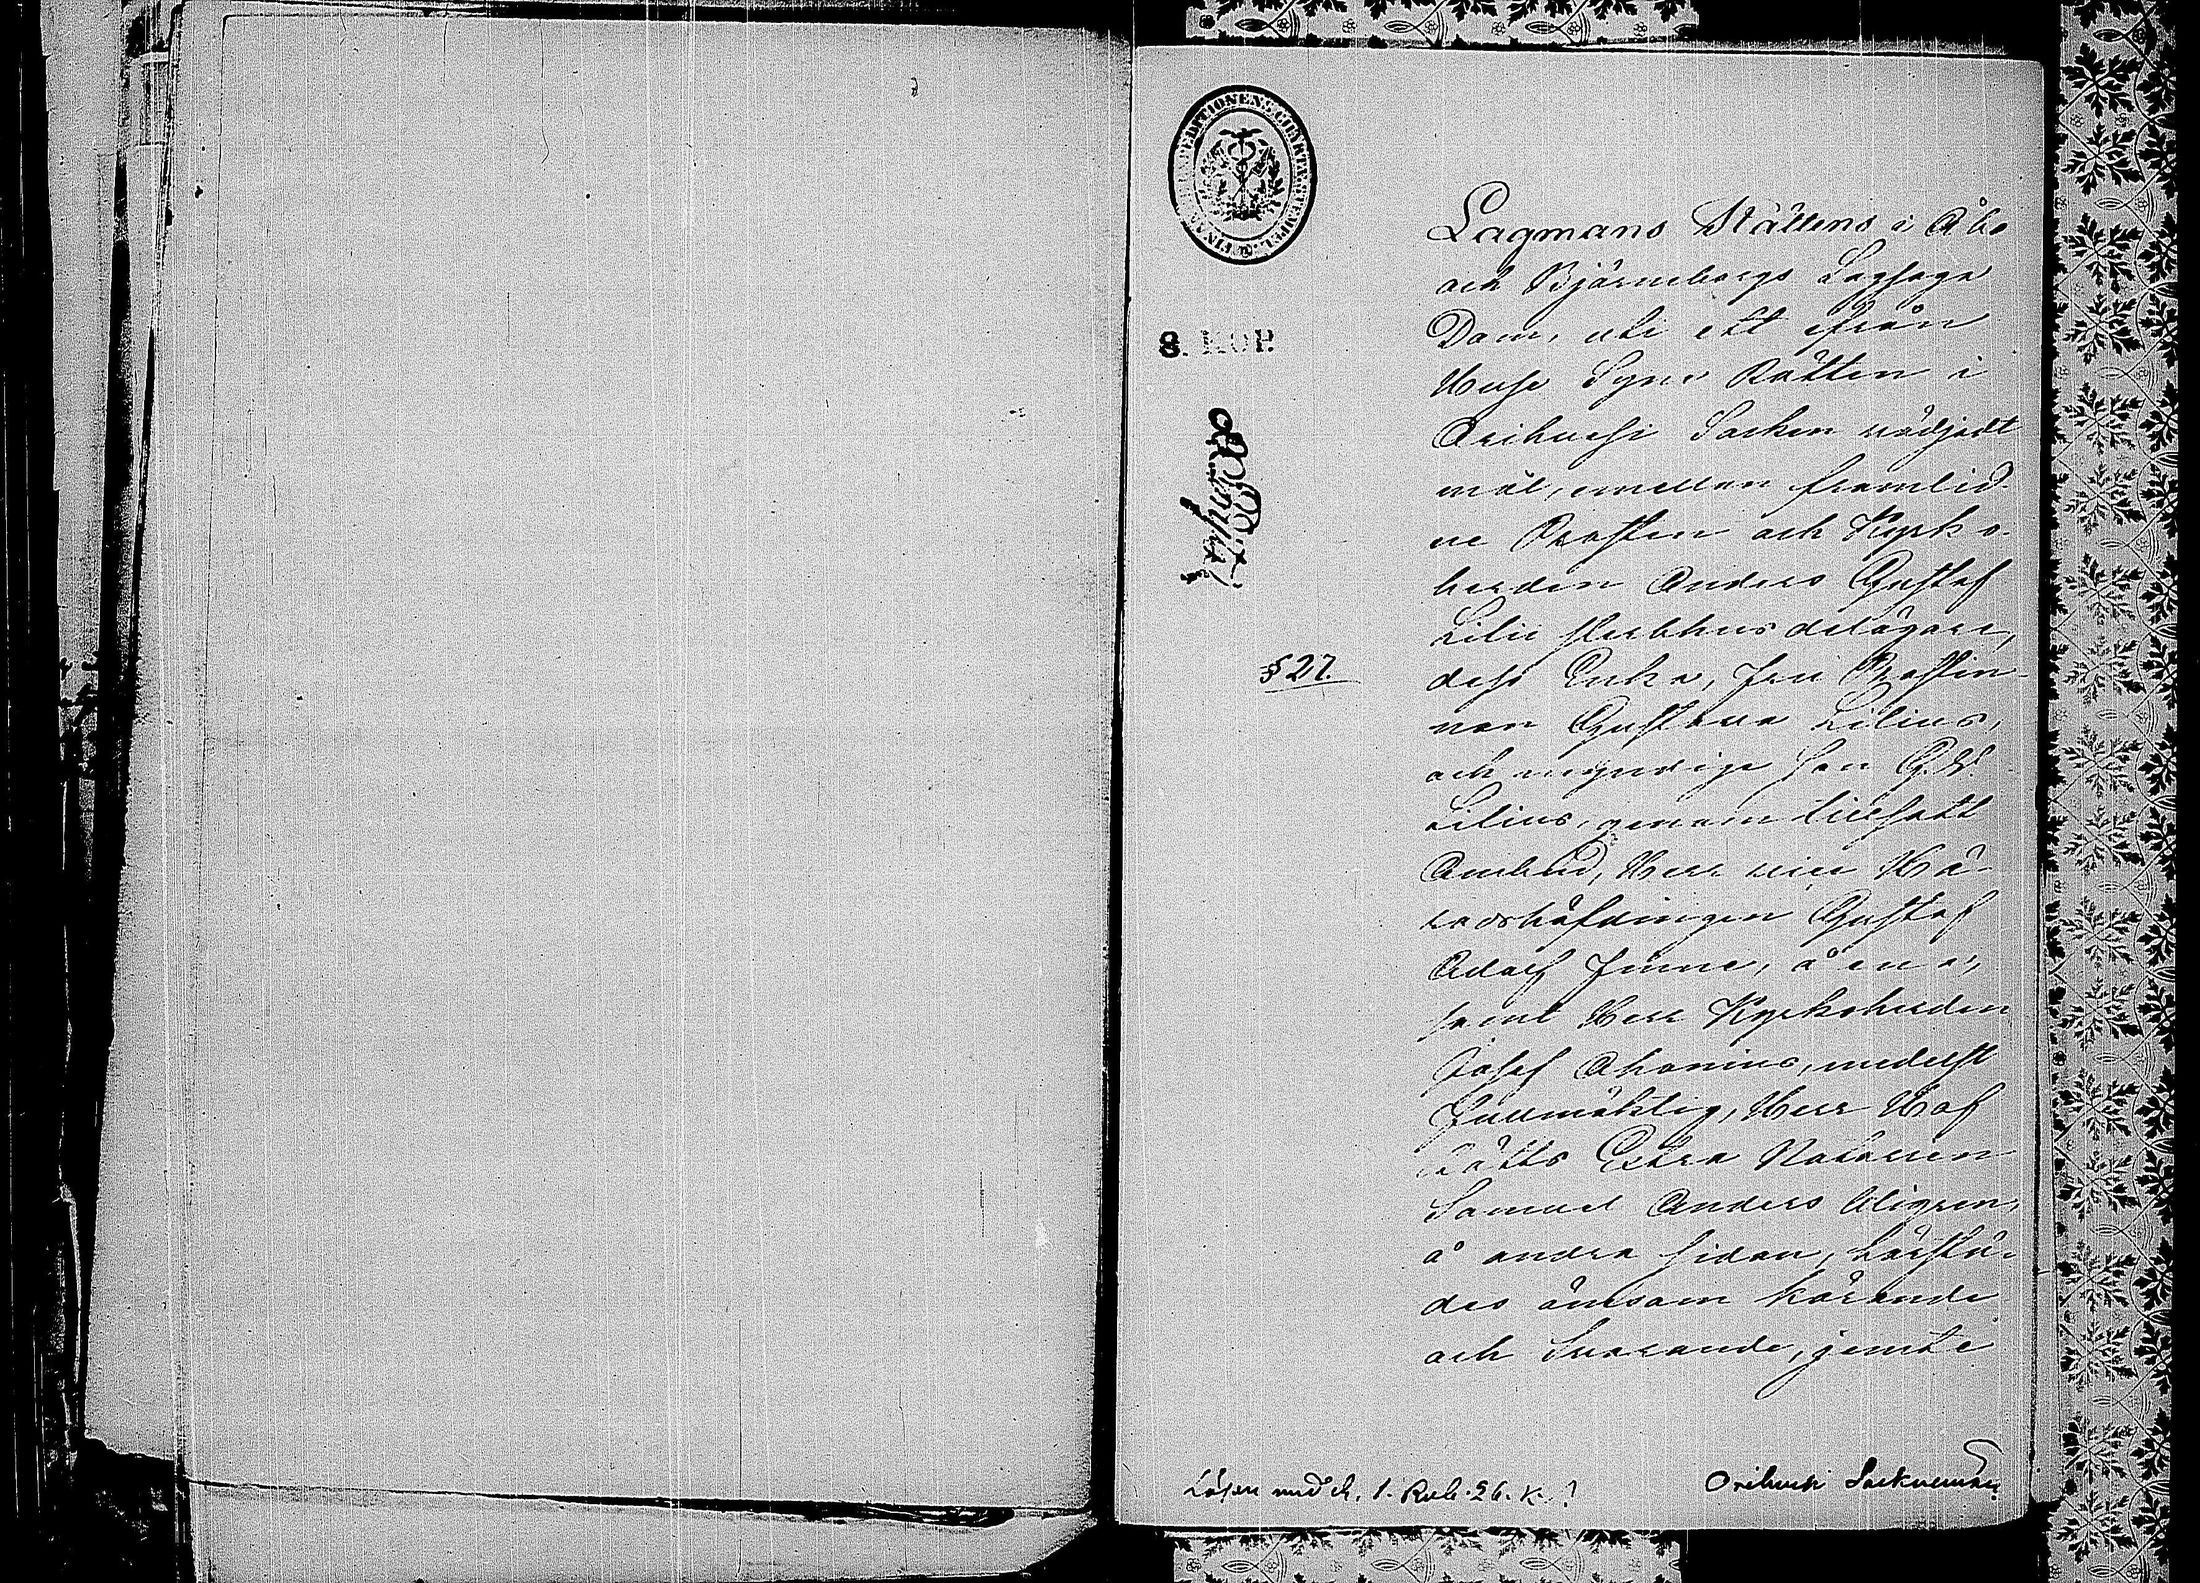 FINANS EXPEDITIONENS CHARTÆ STEMPEL
8. KOP.
§ 27.
Lagmans Rättens i Åbo
och Björneborgs Lagsaga
Dom, uti ett ifrån
Huse Syns Rätten i
Orihvesi Socken vädjadt
mål, emellan framlid-
ne Prosten och Kyrko-
herden Anders Gustaf
Lilii sterbhus delägare,
dess Enka, Fru Prostin-
nan Gustava Lilius,
och myndige Son G. W.
Lilius, genom tillsatt
Ombud, Herr vice Hä-
radshöfdingen Gustaf
Adolf Finne, å ena,
samt Herr Kyrkoherden
Josef Ahonius, medelst
Fullmäktig, Herr Hof
Rätts Extra Notarien
Samuel Anders Almgren,
å andra sidan, härstä-
des ömsom kärande
och Svarande, jemte
Lösen med Ch. 1. Rub. 26. K.
Orihvesi Sockneman